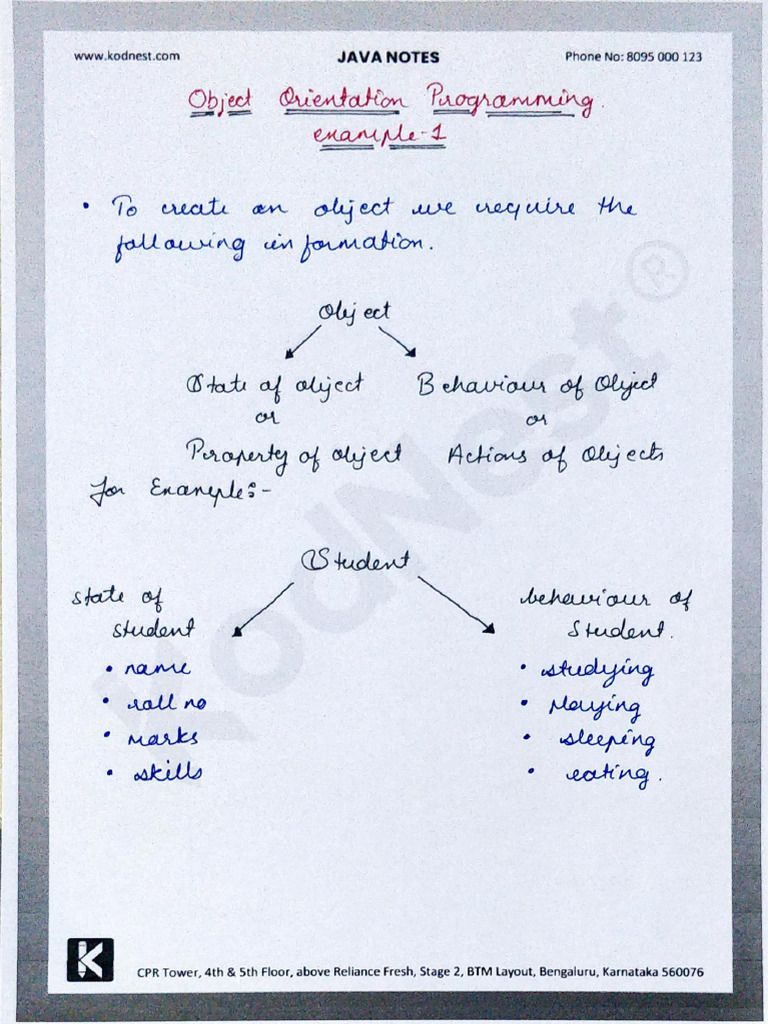 www.kodnest.com JAVA NOTES Phone No: 8095 000 123
Object Orientation Programming.
example-1
• To create an object we require the
following information.
Object
State of object Behaviour of Object
or or
Property of object Actions of Objects
for Example:-
Student
state of behaviour of
student student.
• name • studying
• roll no • playing
• marks • sleeping
• skills • eating.
KodNest®
K
CPR Tower, 4th & 5th Floor, above Reliance Fresh, Stage 2, BTM Layout, Bengaluru, Karnataka 560076